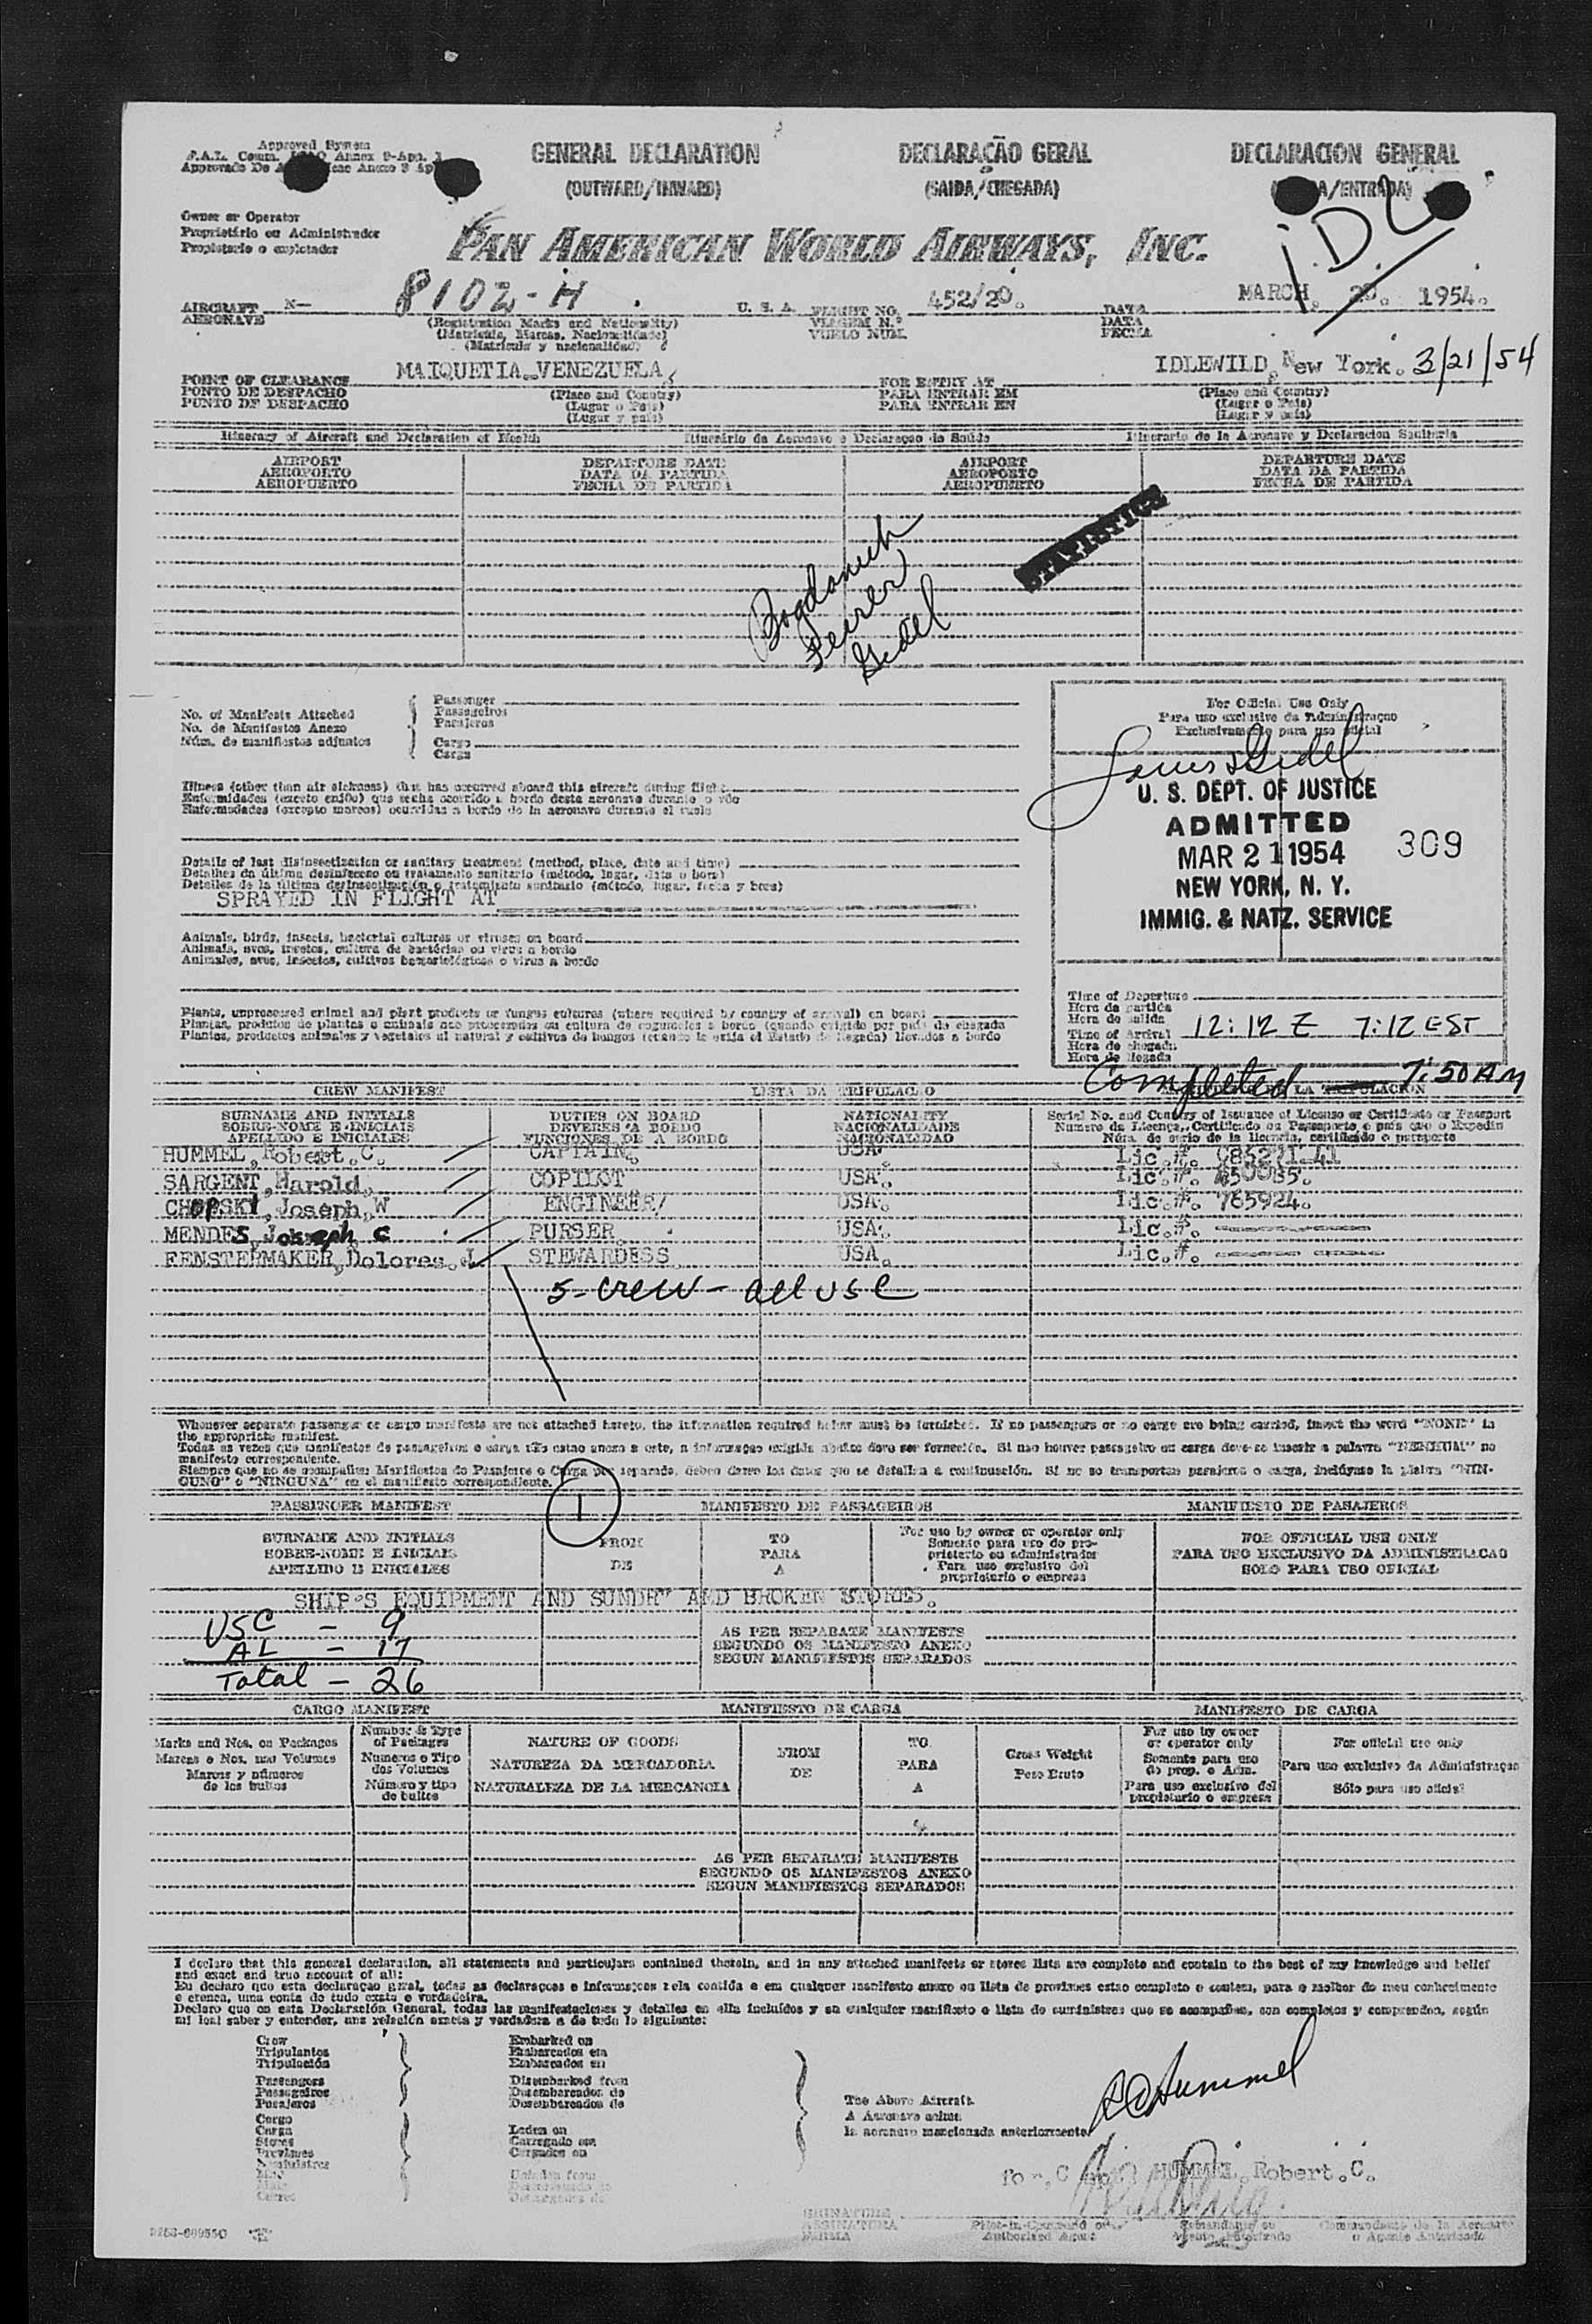 Approved System
F.A.L. Comm. Annex 9-App. 1
Aprovado De Anexo 9 Ap
GENERAL DECLARATION
(OUTWARD/INWARD)
DECLARAÇÃO GERAL
(SAIDA/CHEGADA)
DECLARACION GENERAL
A/ENTRADA)
IDL
Owner or Operator
Proprietário ou Administrador
Propietario o explotador
PAN AMERICAN WORLD AIRWAYS, INC.
AIRCRAFT N— 8102-H U. S. A. FLIGHT NO. 452/20. DATA MARCH 20. 1954.
AERONAVE (Registration Marks and Nationality) VIAGEM N.º DATA
(Matricula, Marcas, Nacionalidade) VUELO NUM. FECHA
(Matricula y nacionalidad)
POINT OF CLEARANCE MAIQUETIA VENEZUELA FOR ENTRY AT IDLEWILD New York. 3/21/54
PONTO DE DESPACHO (Place and Country) PARA ENTRAR EM (Place and Country)
PUNTO DE DESPACHO (Lugar e País) PARA ENTRAR EN (Lugar e País)
(Lugar y país) (Lugar y país)
Itinerary of Aircraft and Declaration of Health Itinerário da Aeronave e Declaração de Saúde Itinerario de la Aeronave y Declaracion Sanitaria
AIRPORT DEPARTURE DATE AIRPORT DEPARTURE DATE
AEROPORTO DATA DA PARTIDA AEROPORTO DATA DA PARTIDA
AEROPUERTO FECHA DE PARTIDA AEROPUERTO FECHA DE PARTIDA
STATISTICS
Bogdanich
Ferrer
Gidel
No. of Manifests Attached
No. de Manifestos Anexo
Núm. de manifiestos adjuntos
Passenger
Passageiros
Pasajeros
Cargo
Carga
For Official Use Only
Para uso exclusivo da Administraçao
Exclusivamente para uso oficial
U. S. DEPT. OF JUSTICE
ADMITTED
MAR 21 1954 309
NEW YORK, N. Y.
IMMIG. & NATZ. SERVICE
Illness (other than air sickness) that has occurred aboard this aircraft during flight
Enfermidades (exceto enjôo) que tenha ocorrido a bordo desta aeronave durante o vôo
Enfermedades (excepto mareos) ocurridas a bordo de la aeronave durante el vuelo
Details of last disinsectization or sanitary treatment (method, place, date and time)
Detalhes da última desinfeccao ou tratamento sanitario (método, lugar, data e hora)
Detalles de la última desinsectización o tratamiento sanitario (método, lugar, fecha y hora)
SPRAYED IN FLIGHT AT
Animals, birds, insects, bacterial cultures or viruses on board
Animais, aves, insetos, cultura de bactérias ou virus a bordo
Animales, aves, insectos, cultivos bacteriológicos o virus a bordo
Plants, unprocessed animal and plant products or fungus cultures (where required by country of arrival) on board
Plantas, produtos de plantas e animais nao processados ou cultura de cogumelos a bordo (quando exigido por país de chegada
Plantas, productos animales y vegetales al natural y cultivos de hongos (cuando lo exija el Estado de llegada) llevados a bordo
Time of Departure
Hora da partida
Hora de salida
Time of Arrival 12:12 Z 7:12 EST
Hora de chegada
Hora de llegada
Completed 7:50 AM
CREW MANIFEST LISTA DA TRIPULACAO LA TRIPULACION
SURNAME AND INITIALS DUTIES ON BOARD NATIONALITY Serial No. and Country of Issuance of License or Certificate or Passport
SOBRE-NOME E INICIAIS DEVERES A BORDO NACIONALIDADE Numero da Licença, Certificado ou Passaporte e país que o Expediu
APELLIDO E INICIALES FUNCIONES DE A BORDO NACIONALIDAD Núm. de serie de la licencia, certificado o pasaporte
HUMMEL, Robert. C. CAPTAIN. USA. Lic.#.
SARGENT, Harold, COPILOT USA. Lic.#.
CHOPSKI, Joseph, W ENGINEER/ USA. Lic.#. 765924.
MENDES, Joseph C PURSER USA. Lic.#.
FENSTERMAKER, Dolores. J. STEWARDESS USA Lic.#.
5- crew - all USC
Whenever separate passenger or cargo manifests are not attached hereto, the information required below must be furnished. If no passengers or no cargo are being carried, insert the word "NONE" in
the appropriate manifest.
Todas as vezes que manifestos de passageiros e carga não estao anexo a este, a informaçao exigida abaixo deve ser fornecida. Si nao houver passageiro ou carga deve-se inserir a palavra "NENHUM" no
manifesto correspondente.
Siempre que no se acompañen Manifiestos de Pasajeros o Carga por separado, deben darse los datos que se detallan a continuación. Si no se transportan pasajeros o carga, inclúyase la palabra "NIN-
GUNO" o "NINGUNA" en el manifiesto correspondiente.
1
PASSENGER MANIFEST MANIFESTO DE PASSAGEIROS MANIFIESTO DE PASAJEROS
SURNAME AND INITIALS FROM TO For use by owner or operator only FOR OFFICIAL USE ONLY
SOBRE-NOME E INICIAIS PARA Somente para uso do pro- PARA USO EXCLUSIVO DA ADMINISTRACAO
APELLIDO E INICIALES DE A prietario ou administrador SOLO PARA USO OFICIAL
Para uso exclusivo del
proprietario o empresa
SHIP'S EQUIPMENT AND SUNDRY AND BROKEN STORES.
USC - 9
AL - 17
Total - 26
AS PER SEPARATE MANIFESTS
SEGUNDO OS MANIFESTO ANEXO
SEGUN MANIFIESTOS SEPARADOS
CARGO MANIFEST MANIFIESTO DE CARGA MANIFESTO DE CARGA
Marks and Nos. on Packages
Marcas e Nos. nos Volumes
Marcas y números
de los bultos
Number & Type
of Packages
Numeros e Tipo
dos Volumes
Número y tipo
de bultos
NATURE OF GOODS
NATUREZA DA MERCADORIA
NATURALEZA DE LA MERCANCIA
FROM
DE
TO
PARA
A
Gross Weight
Peso Bruto
For use by owner
or operator only
Somente para uso
do prop. e Adm.
Para uso exclusivo del
propietario o empresa
For official use only
Para uso exclusivo da Administraçao
Sólo para uso oficial
AS PER SEPARATE MANIFESTS
SEGUNDO OS MANIFESTOS ANEXO
SEGUN MANIFIESTOS SEPARADOS
I declare that this general declaration, all statements and particulars contained therein, and in any attached manifests or stores lists are complete and contain to the best of my knowledge and belief
and exact and true account of all:
Eu declaro que esta declaraçao geral, todas as declaraçoes e informaçoes nela contida e em qualquer manifesto anexo ou lista de provisoes estao completo e contem, para o melhor do meu conhecimento
e crenca, uma conta de tudo exata e verdadeira.
Declaro que en esta Declaración General, todas las manifestaciones y detalles en ella incluídos y en cualquier manifiesto o lista de suministros que se acompañan, son completos y comprenden, según
mi leal saber y entender, una relación exacta y verdadera a de todo lo siguiente:
Crew
Tripulantes
Tripulación
Passengers
Passageiros
Pasajeros
Cargo
Carga
Stores
Embarked on
Embarcados em
Embarcados en
Disembarked from
Desembarcados de
Desembarcados de
Laden on
Carregado em
Cargados en
Unladen from
The Above Aircraft
A Aeronave acima
la aeronave mencionada anteriormente
RCHummel
for, HUMMEL, Robert. C.
SIGNATURE
ASSINATURA
FIRMA
Pilot-in-Command or
Authorized Agent
Comandante ou
Agente Autorizado
Comandante de la Aeronave
o Agente Autorizado